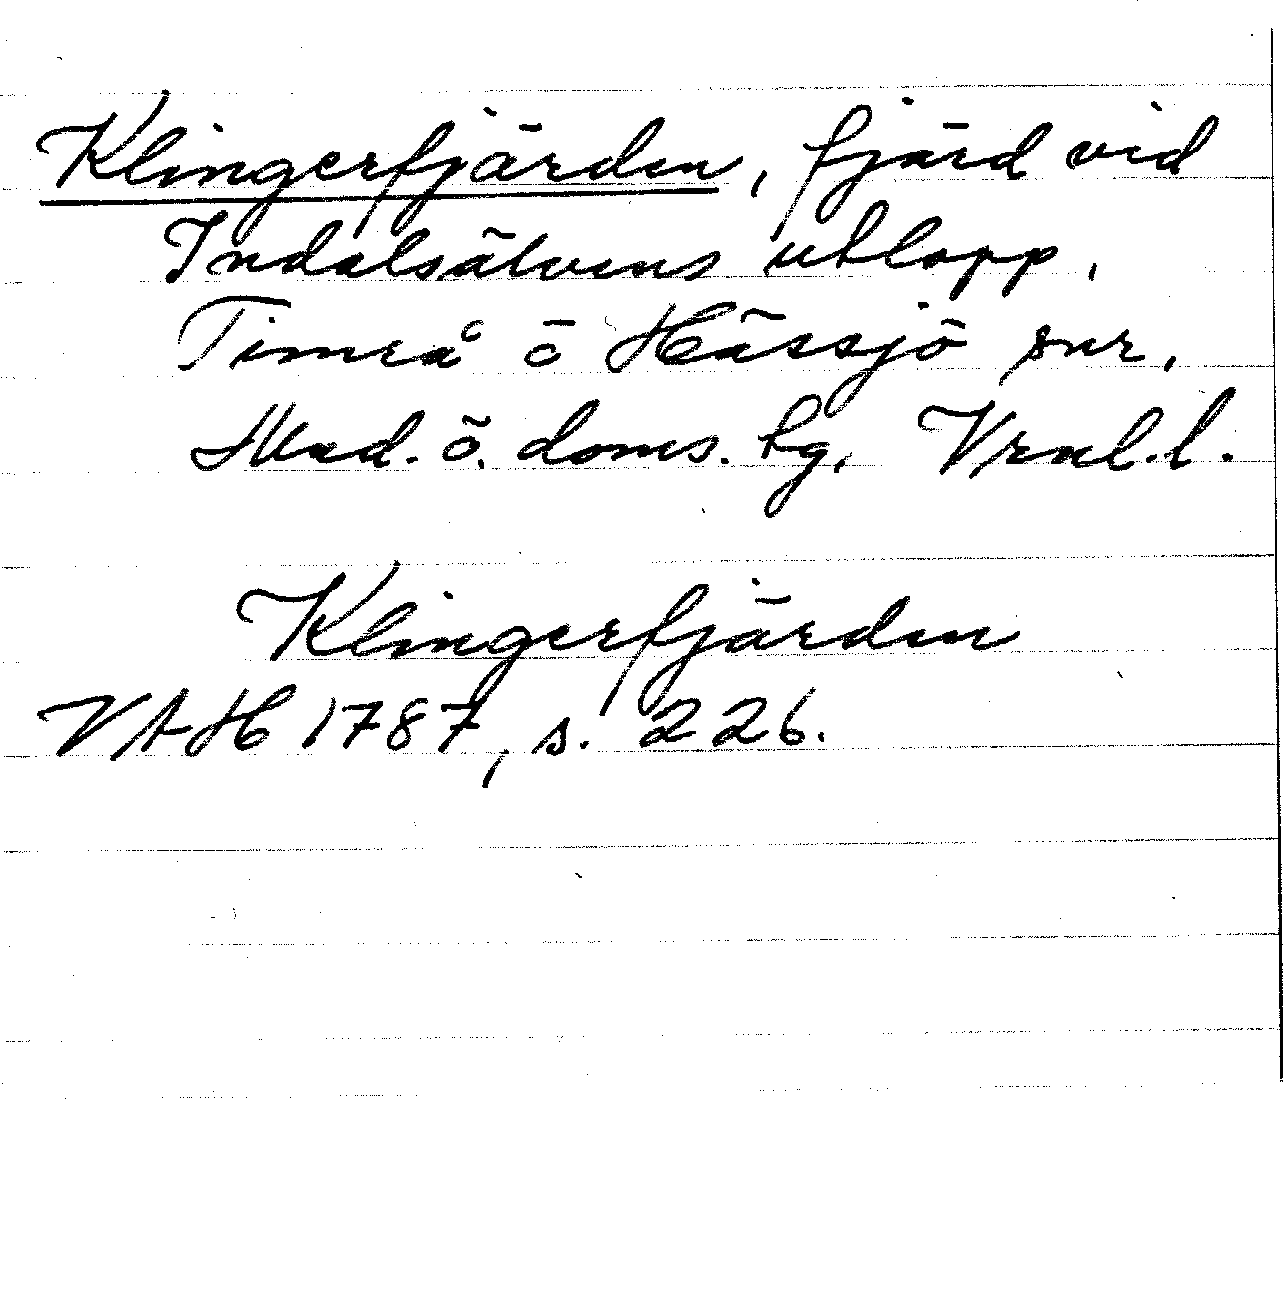 Klingerfjärden, fjärd vid
Indalsälvens utlopp,
Timrå o Hässjö snr,
Med. ö. doms. hg, Vrnl.l.
Klingerfjärden
VAH 1787, s. 226.